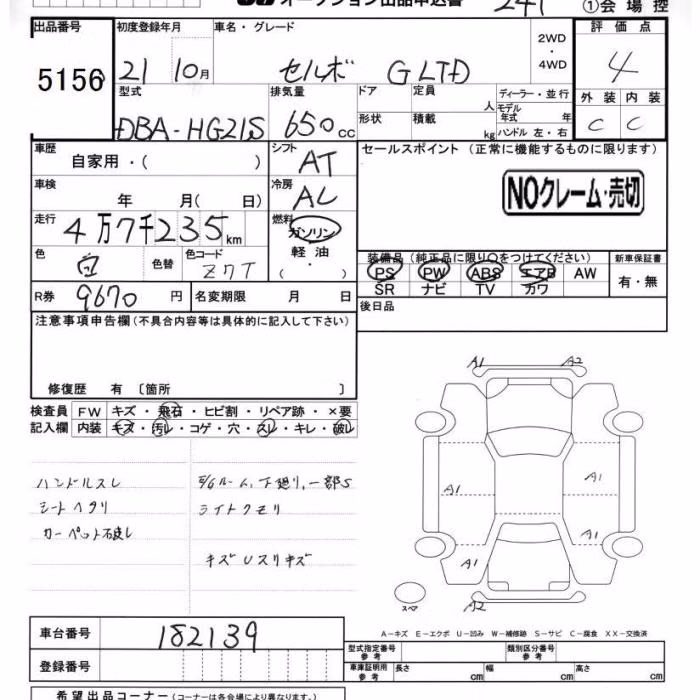 オークション出品申込書 241 ①会場控
出品番号 初度登録年月 車名・グレード 2WD・4WD 評価点
5156 21 10月 セルボ G LTD 4
型式 排気量 ドア 定員 人 ディーラー・並行 外装 内装
DBA-HG21S 650cc 形状 積載 kg モデル年式 年 ハンドル 左・右 C C
車歴 自家用・( ) シフト AT セールスポイント (正常に機能するものに限ります)
車検 年 月( 日) 冷房 AL NOクレーム・売切
走行 4万7千235km 燃料 ガソリン 軽油・( )
色 白 色替 色コード Z7T 装備品(純正品に限り○をつけてください) 新車保証書
PS PW ABS エアB AW 有・無
SR ナビ TV カワ
R券 9670円 名変期限 月 日 後日品
注意事項申告欄(不具合内容等は具体的に記入して下さい)
修復歴 有〔箇所 〕
検査員 FW キズ・飛石・ヒビ割・リペア跡・×要
記入欄 内装 キズ・汚レ・コゲ・穴・スレ・キレ・破レ
ハンドルスレ
シートヘタリ
下廻り、一部S
ライトクモリ
キズUスリキズ
A1 A2
A1 A1
A1
A1
スペア A2
A-キズ E-エクボ U-凹み W-補修跡 S-サビ C-腐食 XX-交換済
車台番号 182139
型式指定番号 参考 類別区分番号 参考
登録番号 車庫証明用 参考 長さ cm 幅 cm 高さ cm
希望出品コーナー(コーナーは各会場により異なります。)